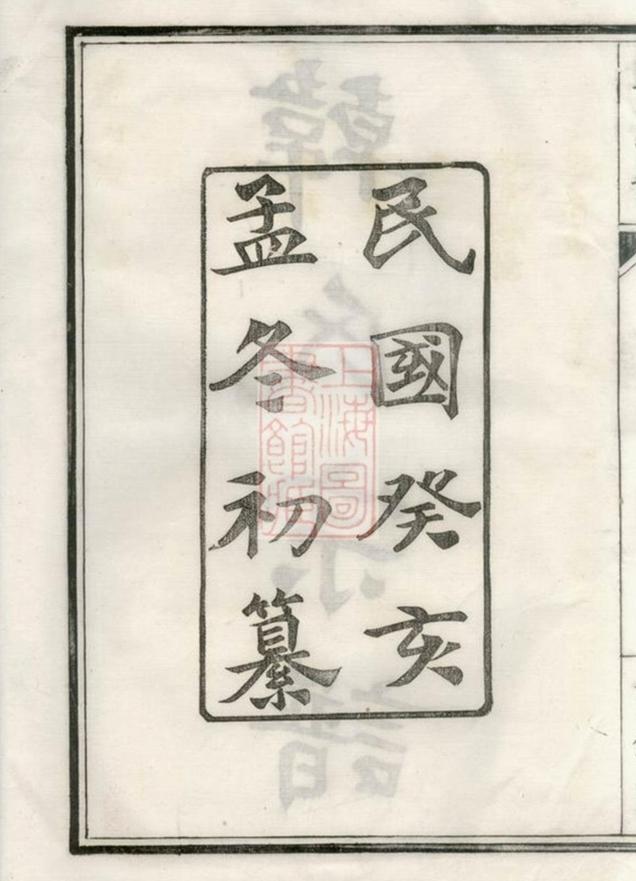 民國癸亥
孟冬初纂
上海圖
書館藏